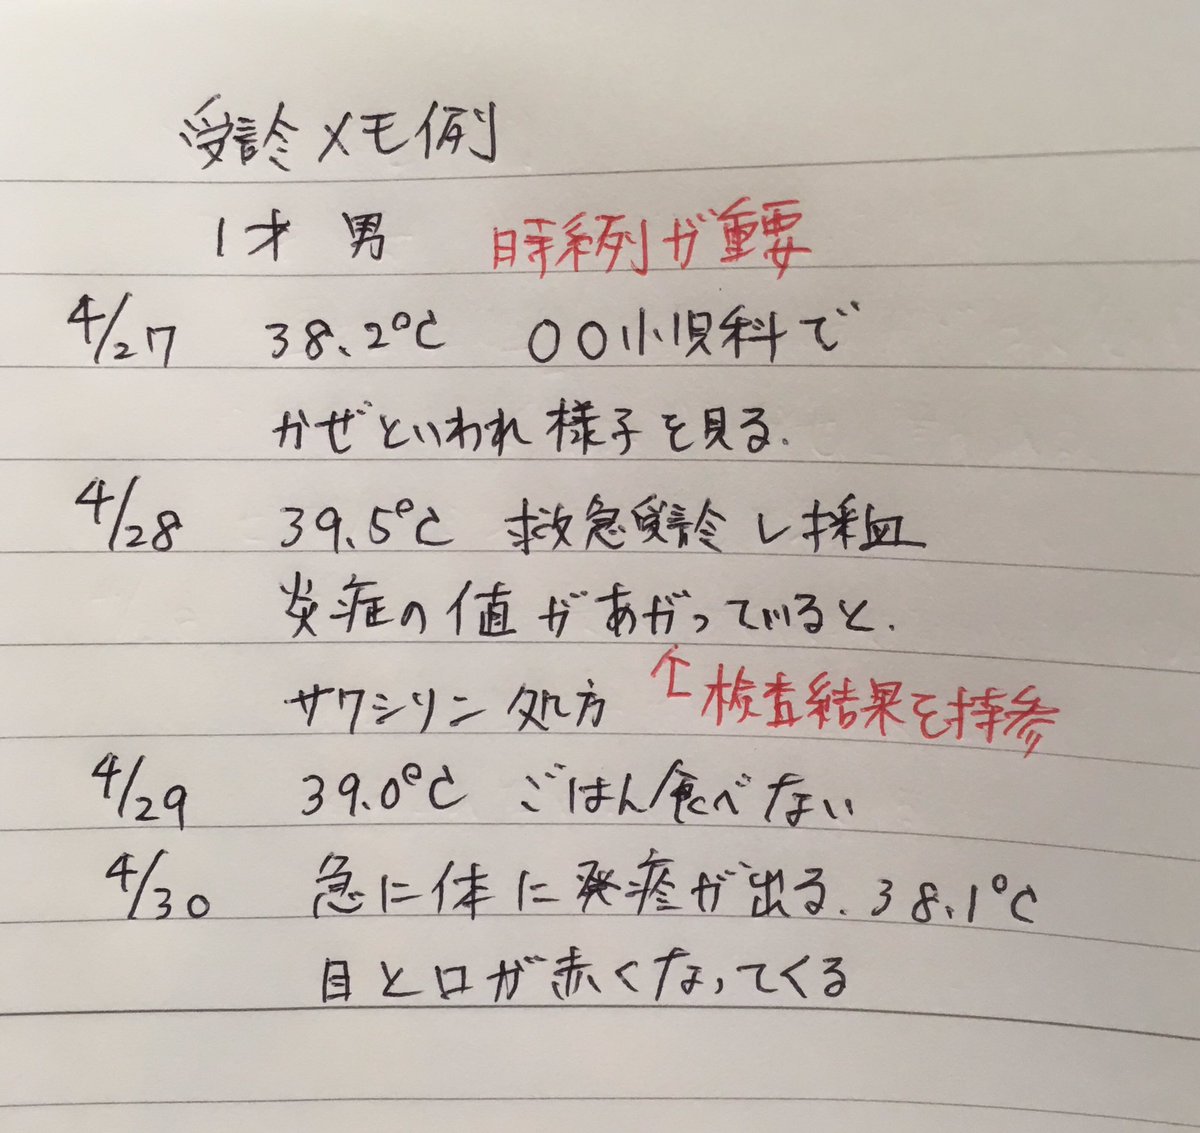 受診メモ例
1才 男 時系列が重要
4/27 38.2℃ 〇〇小児科で
かぜといわれ様子を見る.
4/28 39.5℃ 救急受診し採血
炎症の値があがっていると.
サワシリン処方 ↑検査結果を持参
4/29 39.0℃ ごはん食べない
4/30 急に体に発疹が出る. 38.1℃
目と口が赤くなってくる